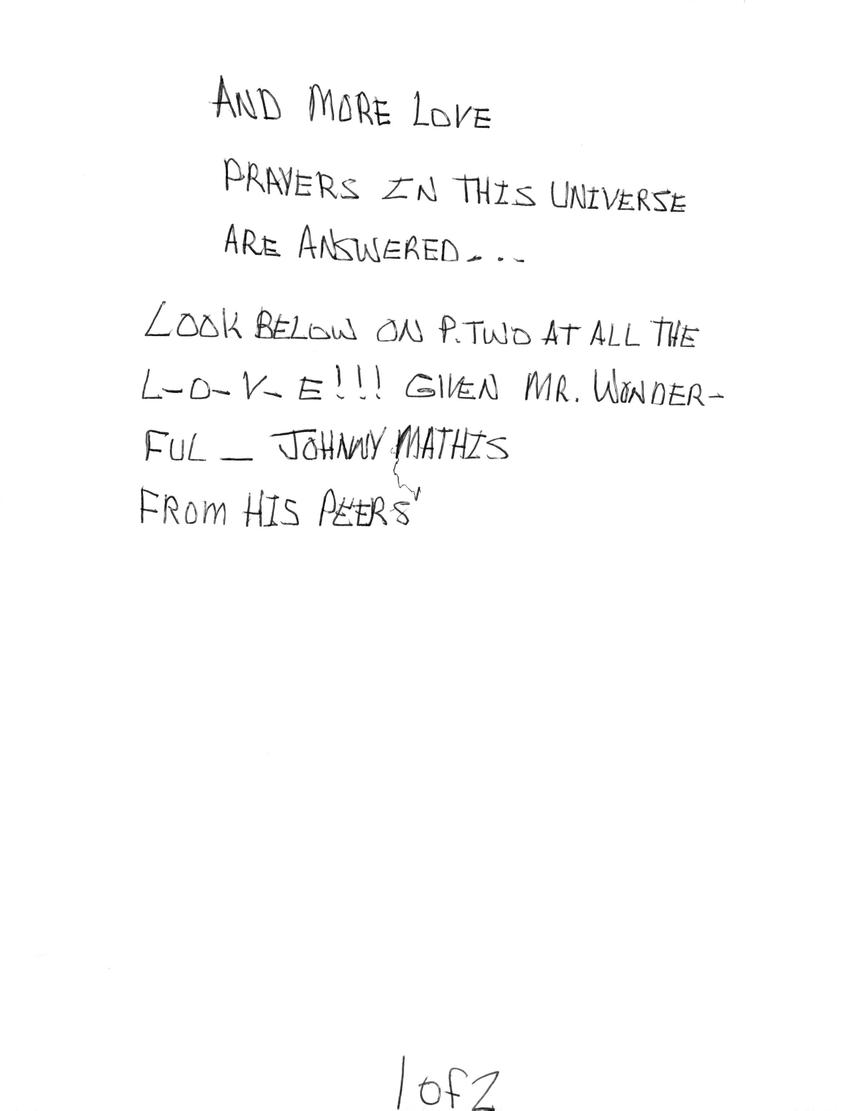 AND MORE LOVE
PRAYERS IN THIS UNIVERSE
ARE ANSWERED...
LOOK BELOW ON P.TWO AT ALL THE
L-O-V-E!!! GIVEN MR. WONDER-
FUL — JOHNNY MATHIS
FROM HIS PEERS
1 of 2